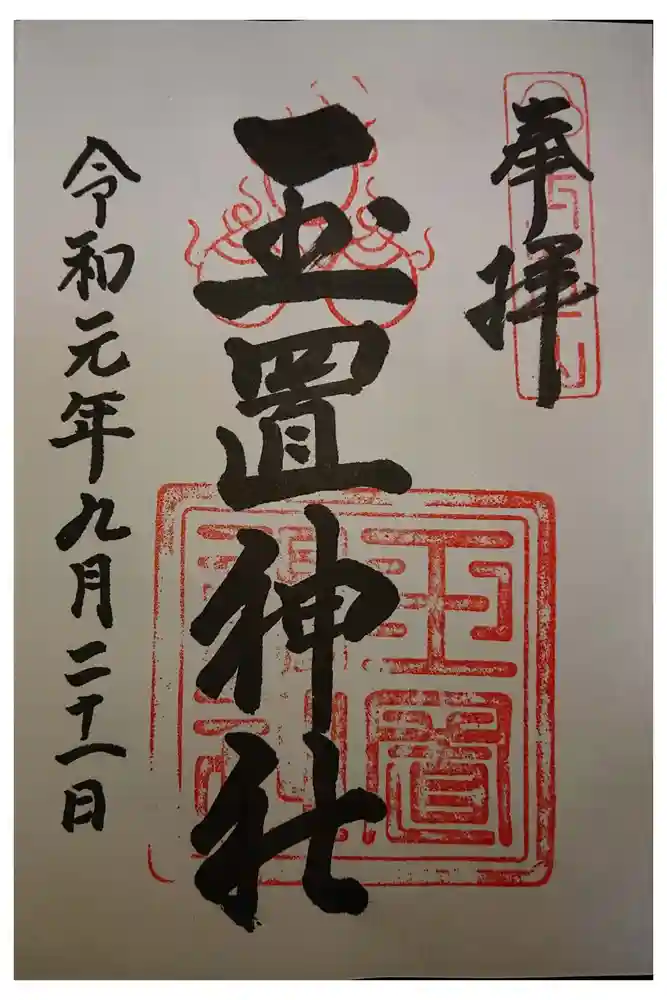 奉拝
玉置神社
令和元年九月二十一日
玉置
神社